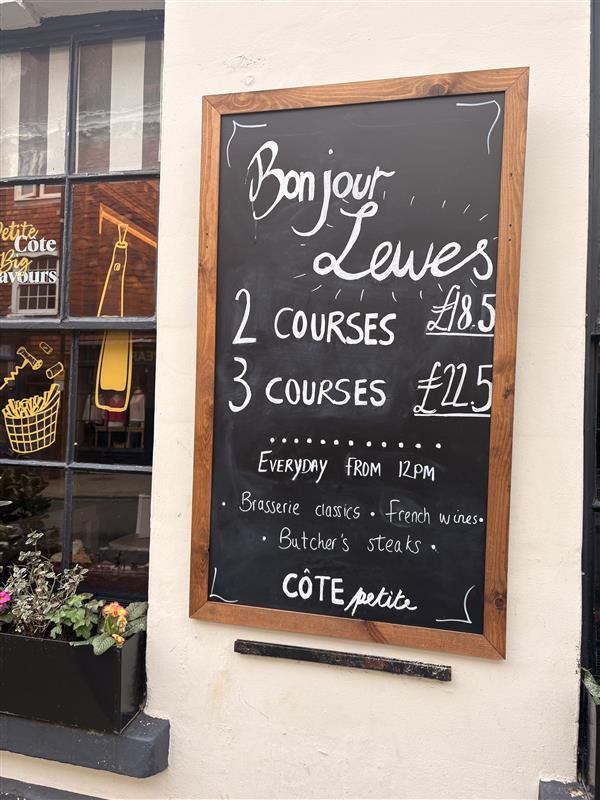 Bonjour
Lewes
2 COURSES £18.5
3 COURSES £22.5
EVERYDAY FROM 12PM
• Brasserie classics • French wines •
• Butcher's steaks •
CÔTE petite
Petite
Côte
Big